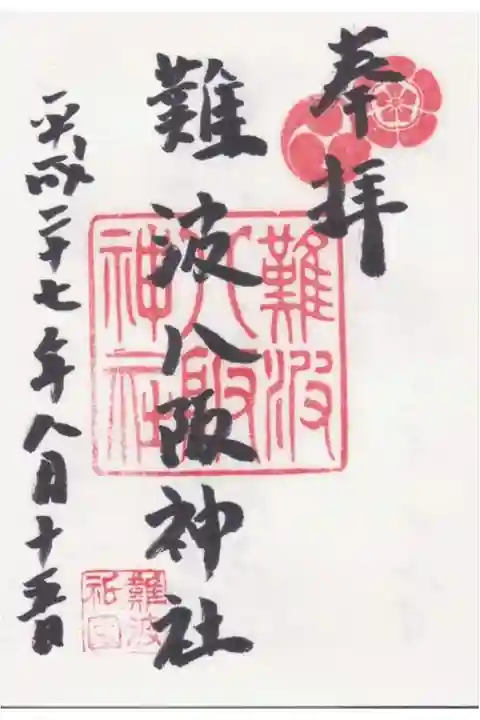 奉拝
難波八阪神社
難波八阪神社
平成二十七年八月十五日
難波祇園